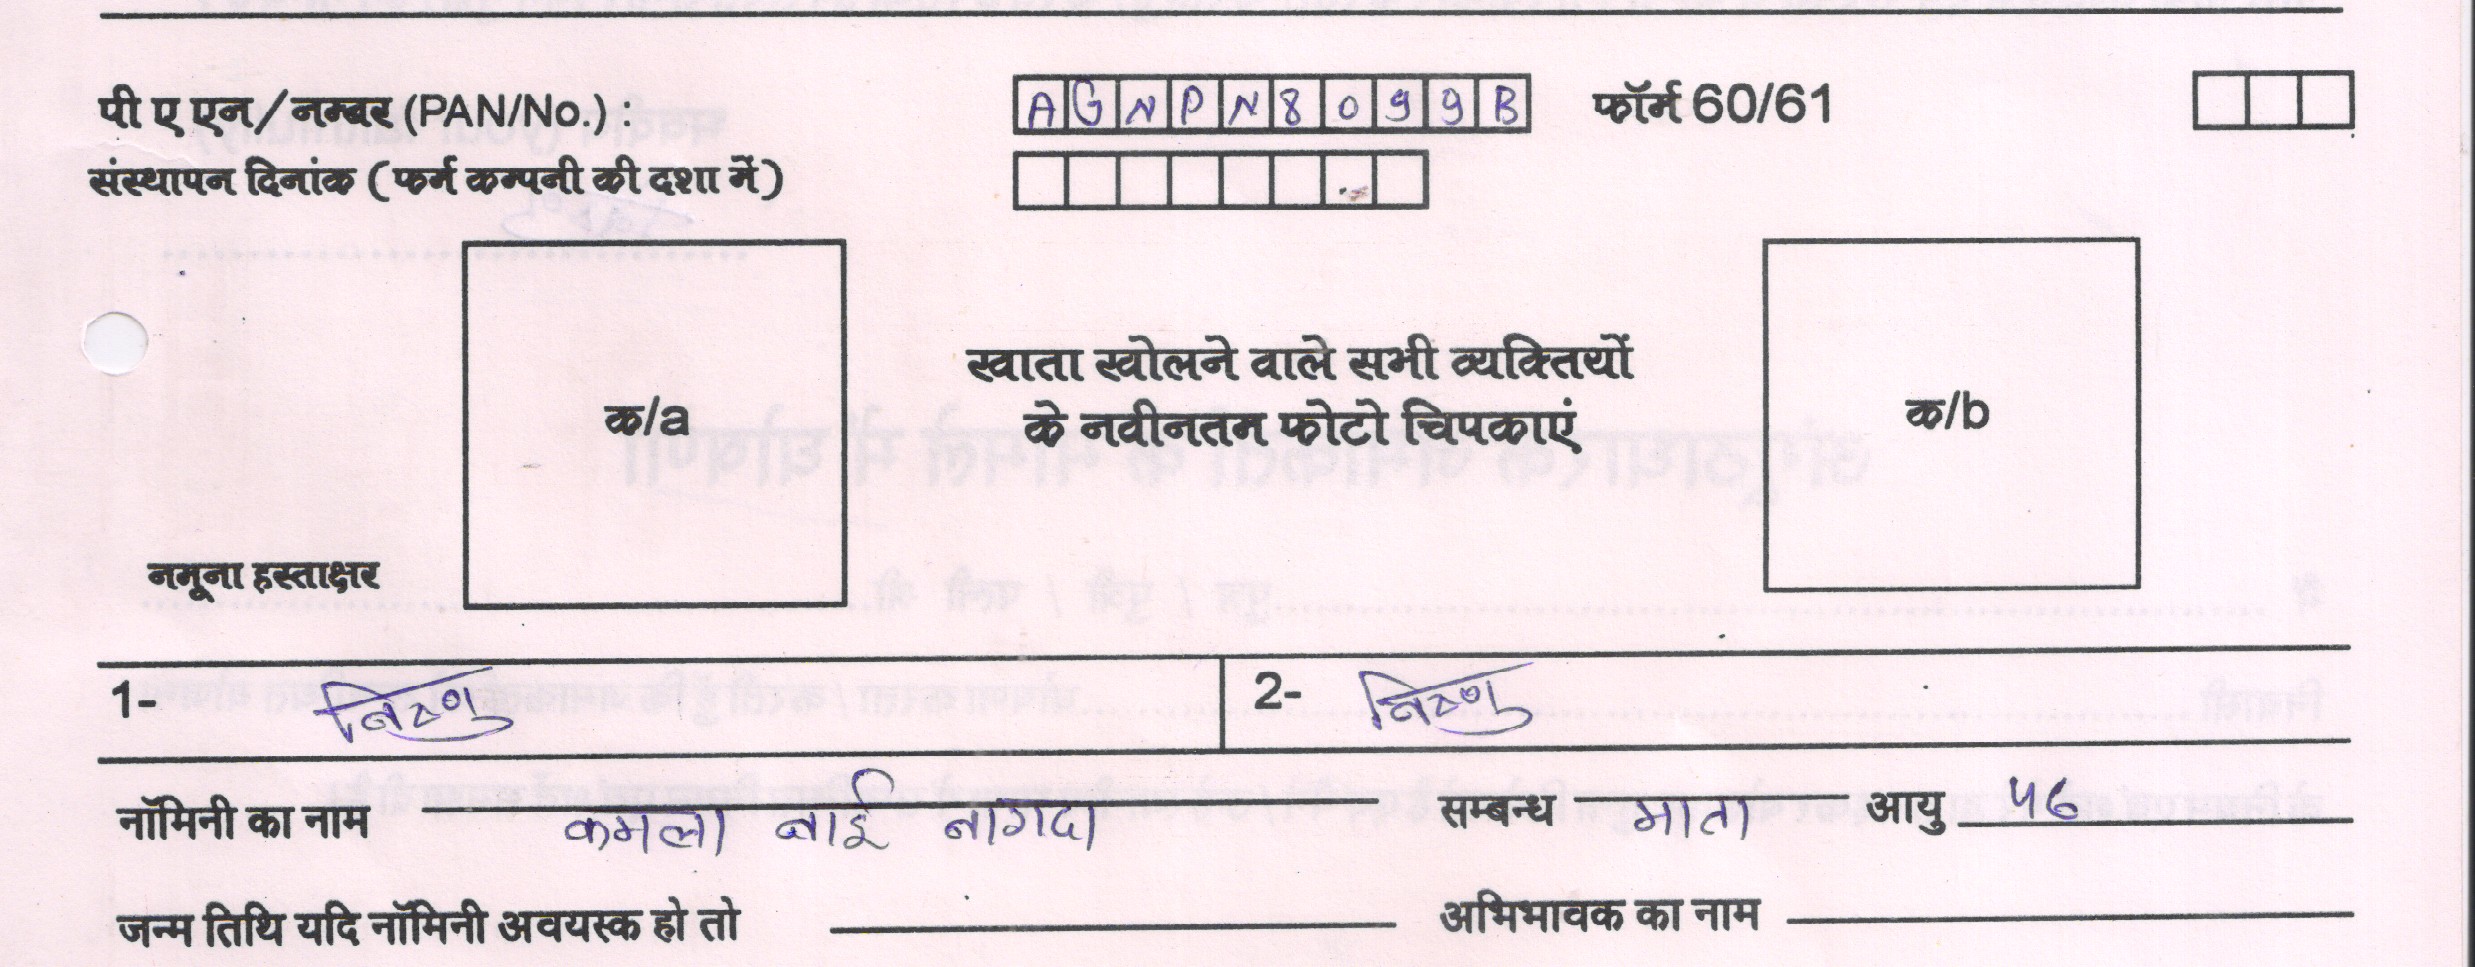 पी ए एन / नम्बर (PAN/No.) : AGNPN8099B फॉर्म 60/61
संस्थापन दिनांक ( फर्म कम्पनी की दशा में )
खाता खोलने वाले सभी व्यक्तियों
के नवीनतम फोटो चिपकाएं
क/a
क/b
नमूना हस्ताक्षर
1- विष्णु 2- विष्णु
नॉमिनी का नाम कमला बाई नागदा सम्बन्ध माता आयु 56
जन्म तिथि यदि नॉमिनी अवयस्क हो तो अभिभावक का नाम